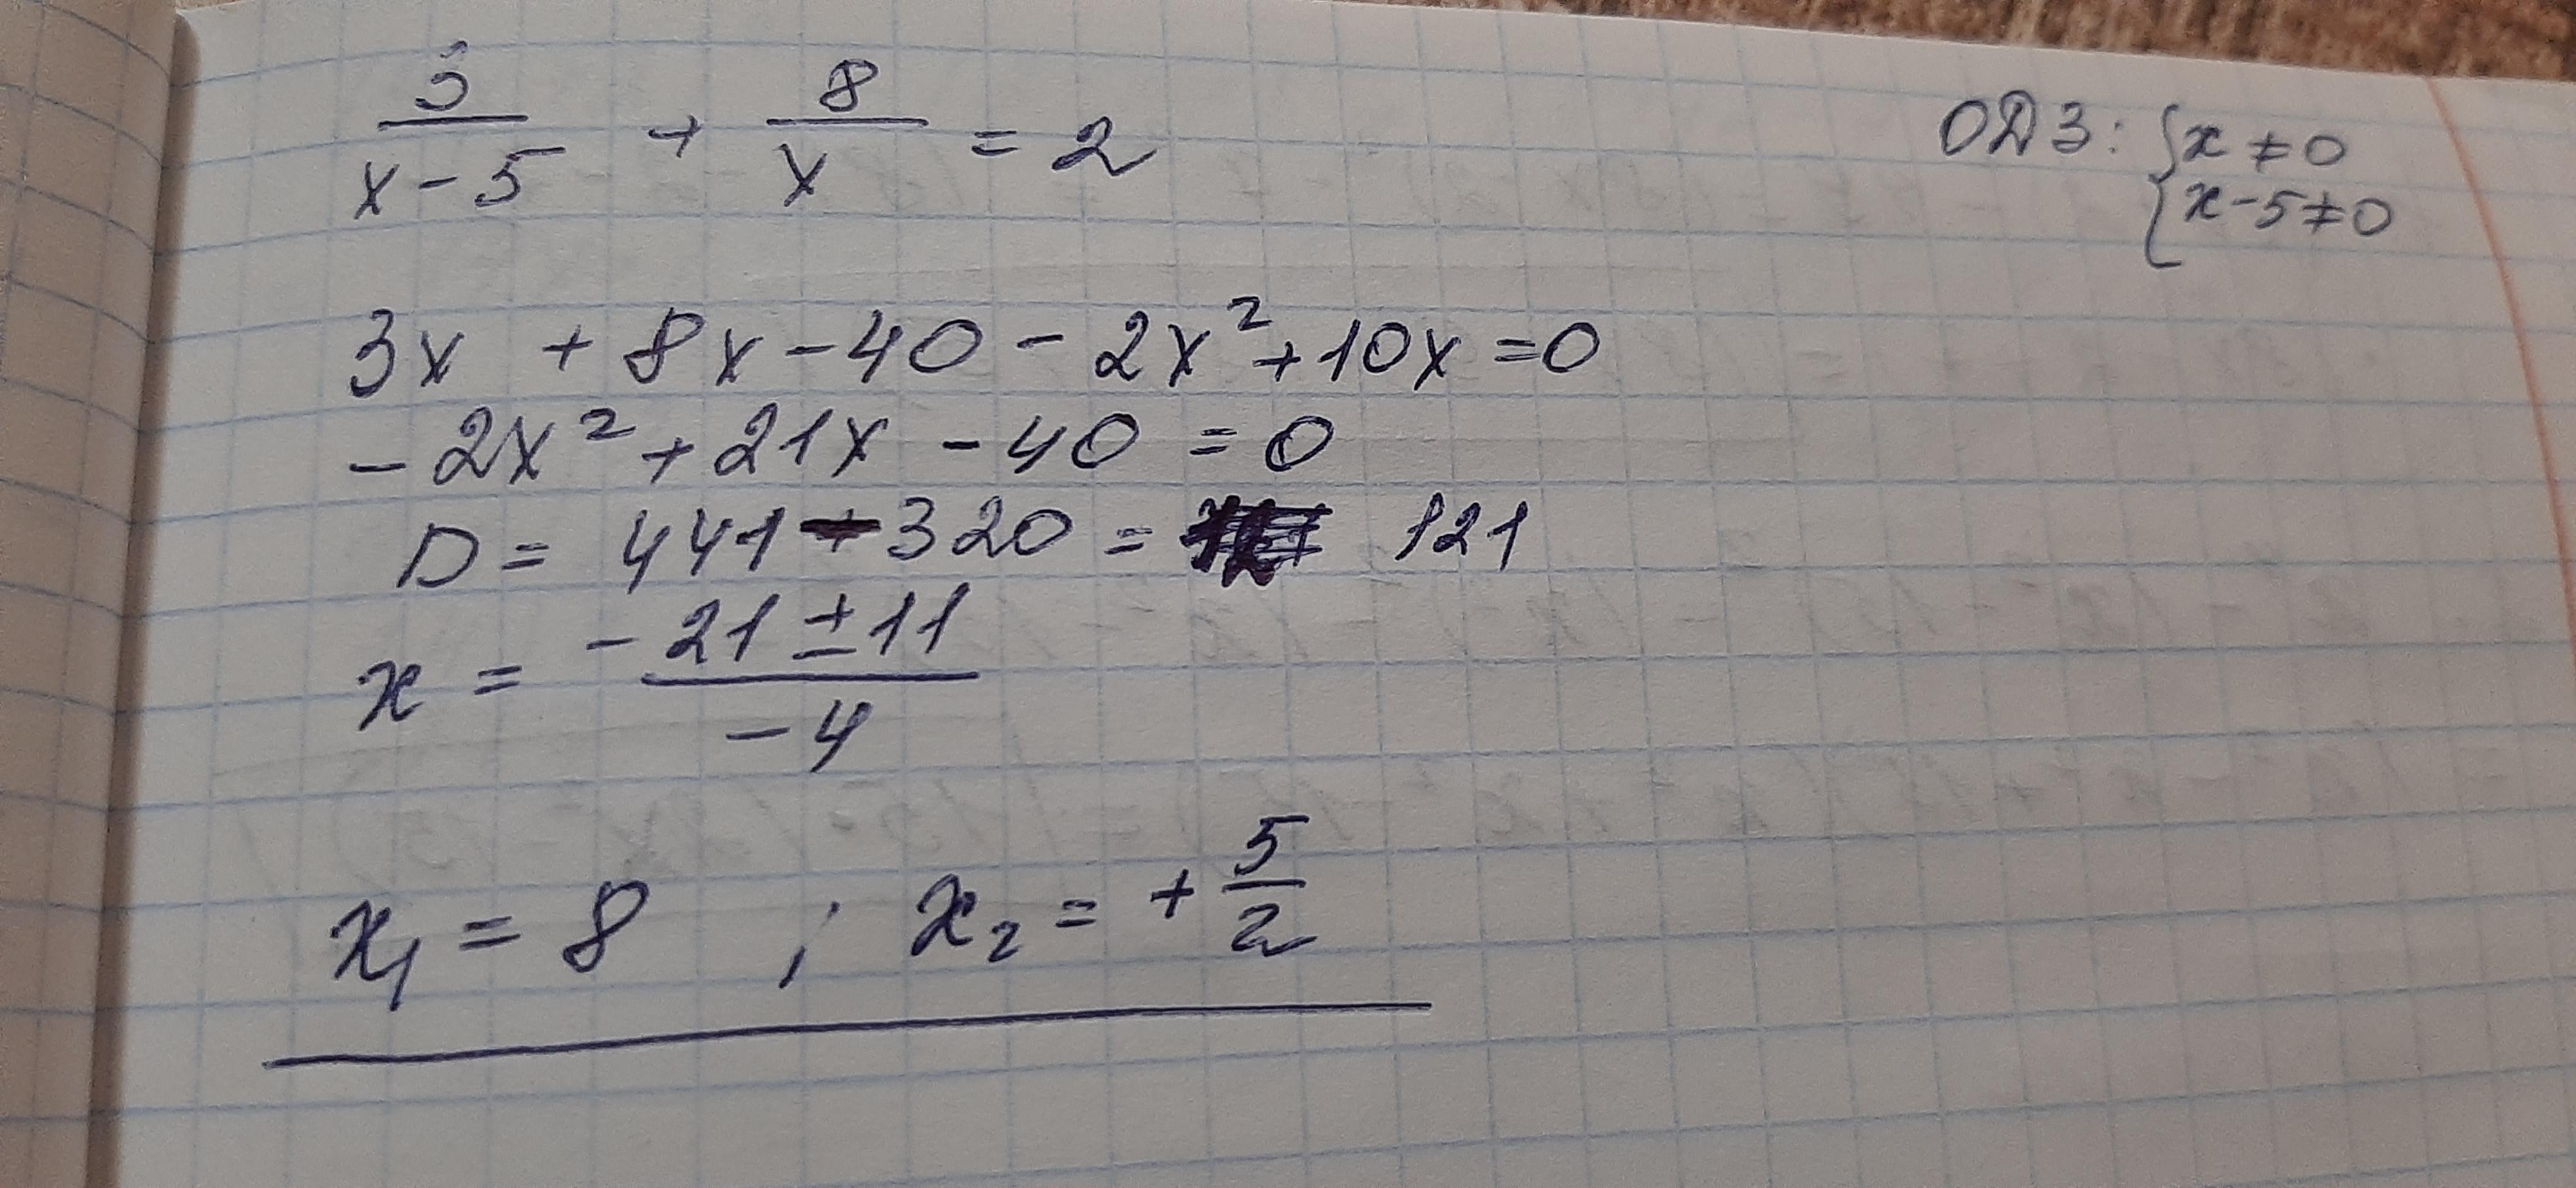 3/(x-5) + 8/x = 2
ОДЗ: { x ≠ 0
x - 5 ≠ 0
3x + 8x - 40 - 2x² + 10x = 0
-2x² + 21x - 40 = 0
D = 441 - 320 = 121
x = (-21 ± 11)/(-4)
x₁ = 8 ; x₂ = + 5/2